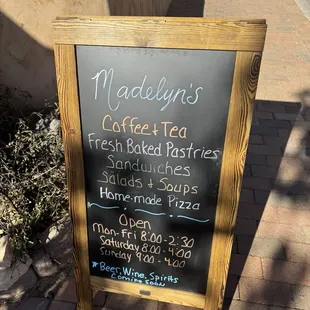 Madelyn's
Coffee & Tea
Fresh Baked Pastries
Sandwiches
Salads & Soups
Home-made Pizza
Open
Mon-Fri 8:00-2:30
Saturday 8:00-4:00
Sunday 9:00-4:00
*Beer, Wine, Spirits
Coming Soon